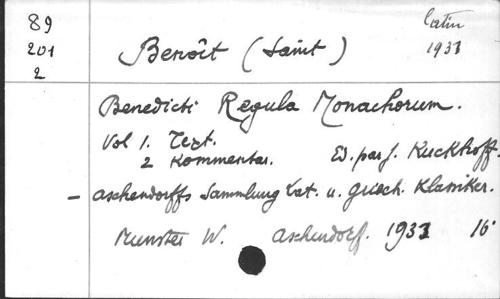 89
201
2
latin
1931
Benoît (Saint)
Benedicti Regula Monachorum.
Vol 1. Text.
2 Kommentar. Ed. par J. Kuckhoff.
- Aschendorffs Sammlung lat. u. griech. Klassiker.
Munster W. Aschendorff. 1931 16°